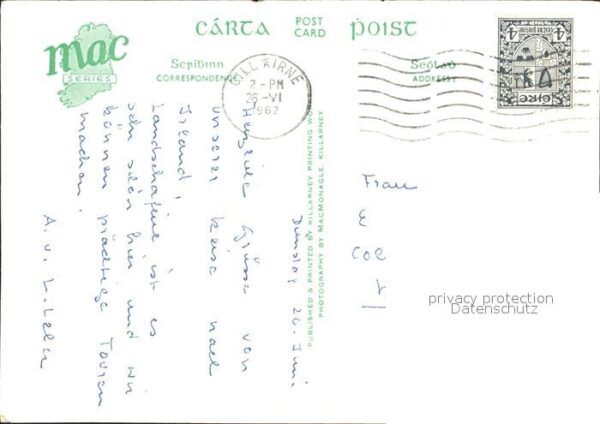 mac
SERIES
CÁRTA POST CARD POIST
Scríbinn
CORRESPONDENCE
Seólaḋ
ADDRESS
CILL AIRNE
2 - PM
26 VI
1962
4 4
EIRE
PUBLISHED & PRINTED BY KILLARNEY PRINTING WORKS
PHOTOGRAPHY BY MACMONAGLE, KILLARNEY
Dienstag 26. Juni
Herzliche Grüsse von
unserer Reise nach
Irland.
Landschaftlich ist es
sehr schön hier und wir
können prächtige Touren
machen.
A. v.
Frau
privacy protection
Datenschutz